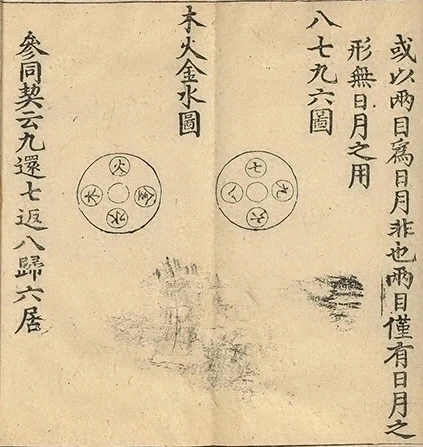 或以兩目爲日月非也兩目僅有日月之
形無日月之用
八七九六圖
七
八
九
六
木火金水圖
火
木
金
水
參同契云九還七返八歸六居